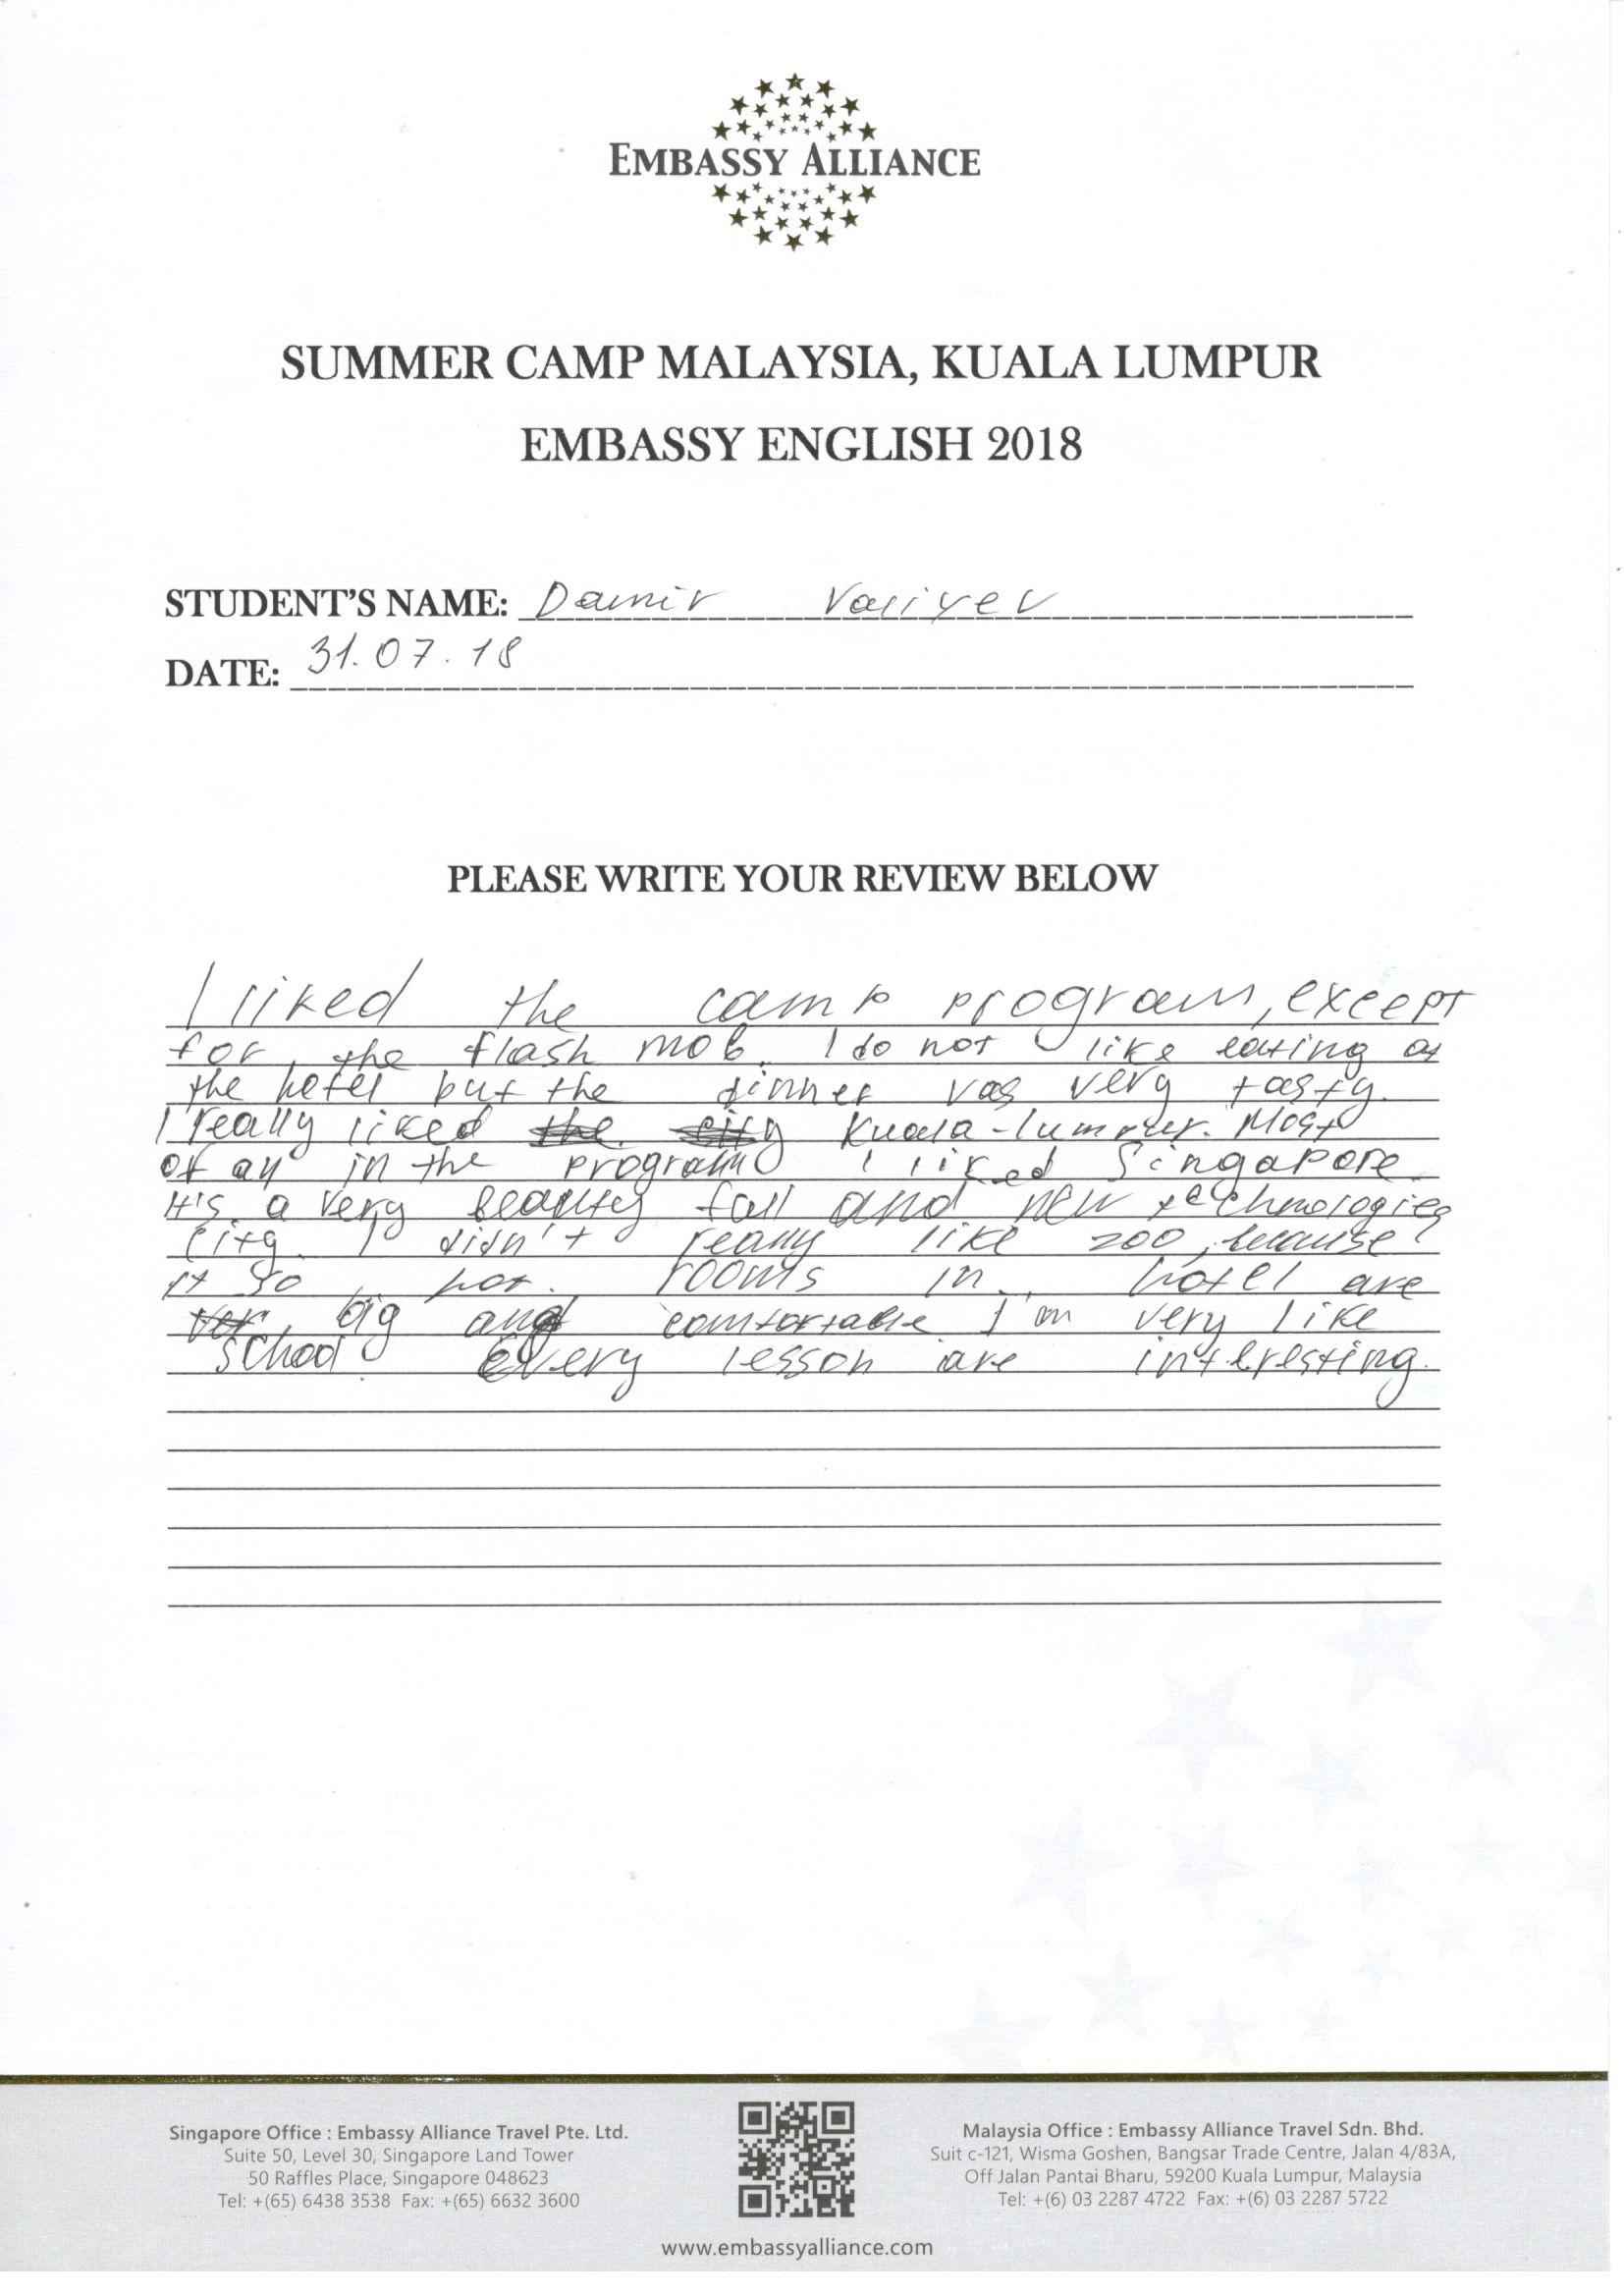 EMBASSY ALLIANCE
SUMMER CAMP MALAYSIA, KUALA LUMPUR
EMBASSY ENGLISH 2018
STUDENT'S NAME: Damir Valiyev
DATE: 31.07.18
PLEASE WRITE YOUR REVIEW BELOW
I liked the camp program, except
for the flash mob. I do not like eating at
the hotel but the dinner vas very tasty.
I really liked the city Kuala-lumpur. Most
of all in the program I liked Singapore.
It's a very beautey full and new technologies
city. I didn't really like zoo, because
it so hot. rooms in hotel are
big and comfortable. I'm very like
school. Every lesson are interesting.
Singapore Office : Embassy Alliance Travel Pte. Ltd.
Suite 50, Level 30, Singapore Land Tower
50 Raffles Place, Singapore 048623
Tel: +(65) 6438 3538 Fax: +(65) 6632 3600
Malaysia Office : Embassy Alliance Travel Sdn. Bhd.
Suit c-121, Wisma Goshen, Bangsar Trade Centre, Jalan 4/83A,
Off Jalan Pantai Bharu, 59200 Kuala Lumpur, Malaysia
Tel: +(6) 03 2287 4722 Fax: +(6) 03 2287 5722
www.embassyalliance.com